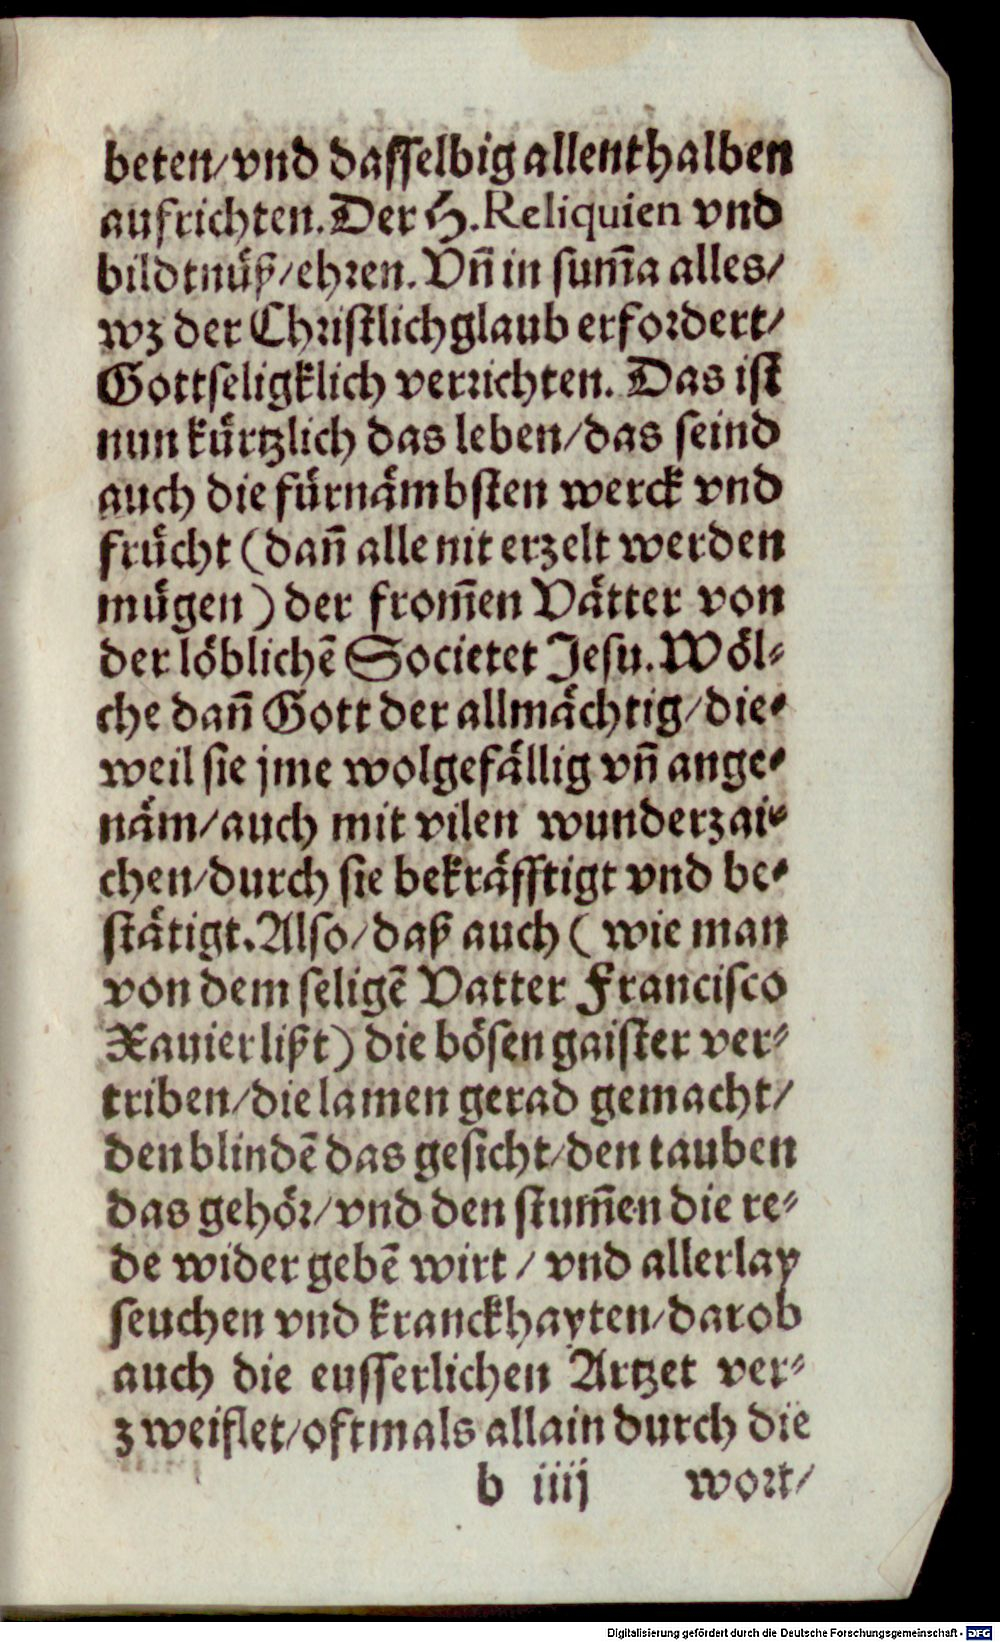 beten/vnd dasselbig allenthalben
aufrichten. Der H. Reliquien vnd
bildtnüß/ehren. Vñ in sum̃a alles/
wz der Christlich glaub erfordert/
Gottseligklich verrichten. Das ist
nun kürtzlich das leben/das seind
auch die fürnämbsten werck vnd
frücht (dañ alle nit erzelt werden
mügen) der from̃en Vätter von
der löblichẽ Societet Jesu. Wöl-
che dañ Gott der allmächtig/die-
weil sie jme wolgefällig vñ ange-
näm/auch mit vilen wunderzai-
chen/durch sie bekräfftigt vnd be-
stätigt. Also/daß auch (wie man
von dem seligẽ Vatter Francisco
Xauier lißt) die bösen gaister ver-
triben/die lamen gerad gemacht/
den blindẽ das gesicht/den tauben
das gehör/vnd den stum̃en die re-
de wider gebẽ wirt/vnd allerlay
seuchen vnd kranckhayten/darob
auch die eusserlichen Artzet ver-
zweiflet/oftmals allain durch die
b iiij wort/
Digitalisierung gefördert durch die Deutsche Forschungsgemeinschaft - DFG